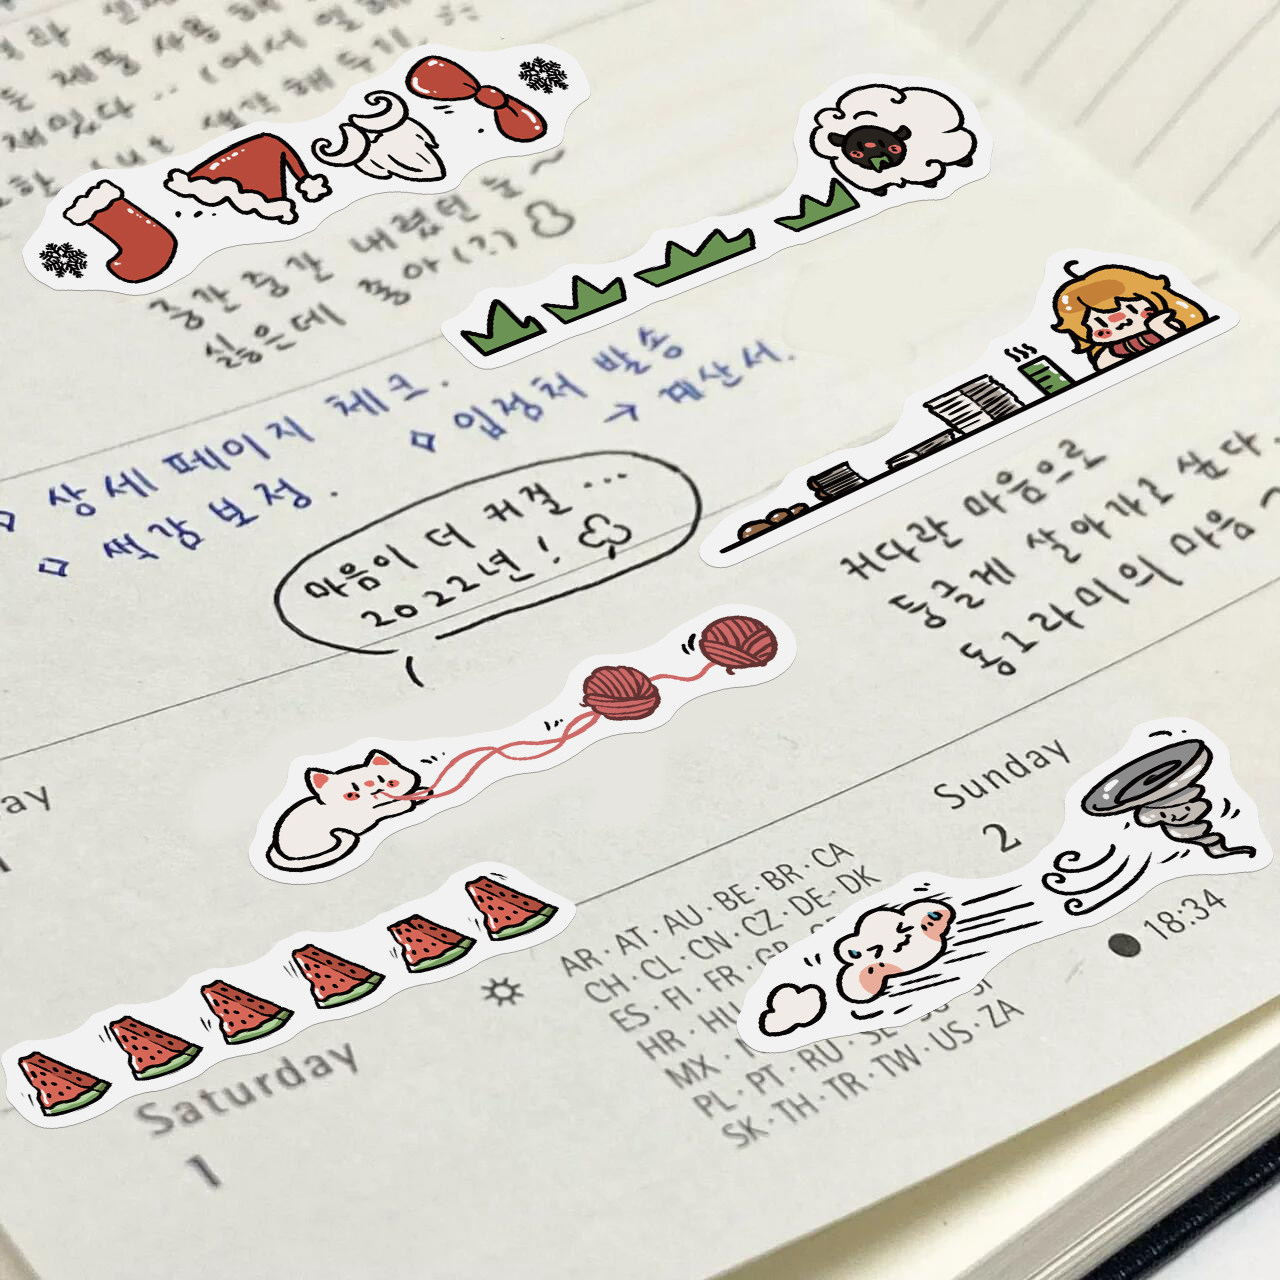 제품 사용해
재밌다 ‥ (어서
생각해 두기.
중간중간 내렸던 눈~
싫은데 좋아(?)
◇ 상세페이지 체크.
◇ 색감보정.
◇ 입점처 발송
→ 계산서.
마음이 더 커질 ...
2022년!
커다란 마음으로
둥글게 살아가고 싶다.
동그라미의 마음 ~
ay
Sunday
2
18:34
AR·AT·AU·BE·BR·CA
CH·CL·CN·CZ·DE·DK
ES·FI·FR·GR
HR·HU
MX
PL·PT·RU·SE·SG·SI
SK·TH·TR·TW·US·ZA
Saturday
1